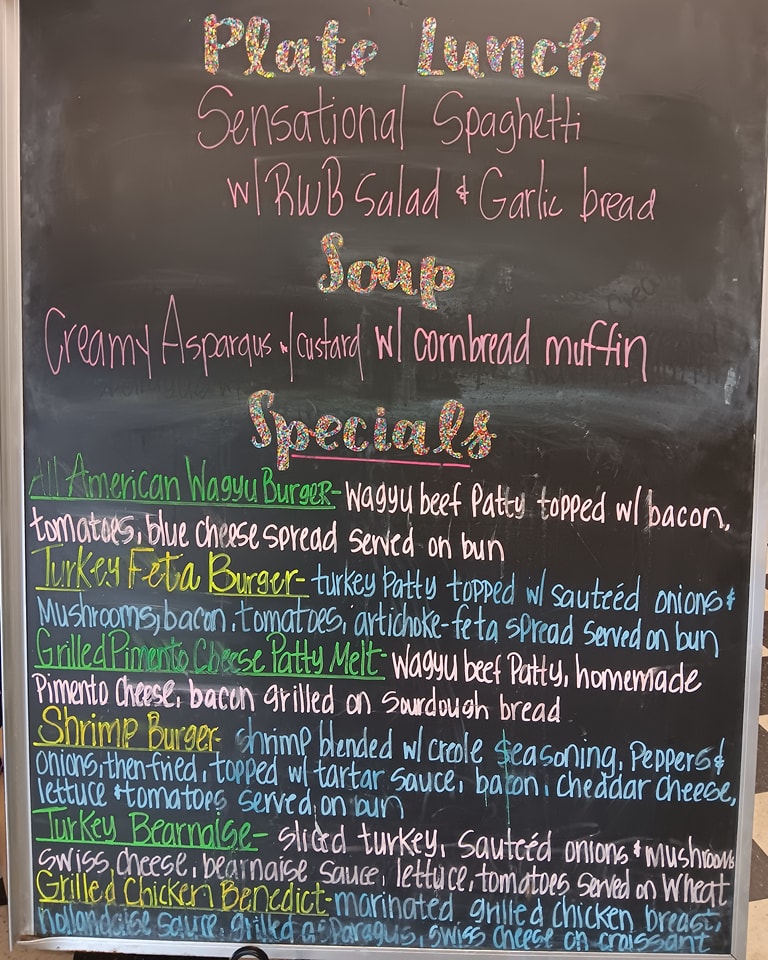 Plate Lunch
Sensational Spaghetti
w/ RWB Salad & Garlic bread
Soup
Creamy Asparqus w/custard w/ cornbread muffin
Specials
All American Wagyu Burger- Wagyu beef Patty topped w/ bacon,
tomatoes, blue cheese spread served on bun
Turkey Feta Burger- turkey Patty topped w/ sauteéd onions &
Mushrooms, bacon, tomatoes, artichoke-feta spread served on bun
Grilled Pimento Cheese Patty Melt- Wagyu beef Patty, homemade
Pimento Cheese, bacon grilled on Sourdough bread
Shrimp Burger- shrimp blended w/ creole seasoning, Peppers &
onions, then-fried, topped w/ tartar sauce, bacon, cheddar cheese,
lettuce & tomatoes served on bun
Turkey Bearnaise- sliced turkey, sauteéd onions & mushrooms
swiss, cheese, bearnaise sauce, lettuce, tomatoes served on Wheat
Grilled Chicken Benedict- marinated grilled chicken breast,
hollandaise sauce, grilled asparagus, swiss cheese on croissant